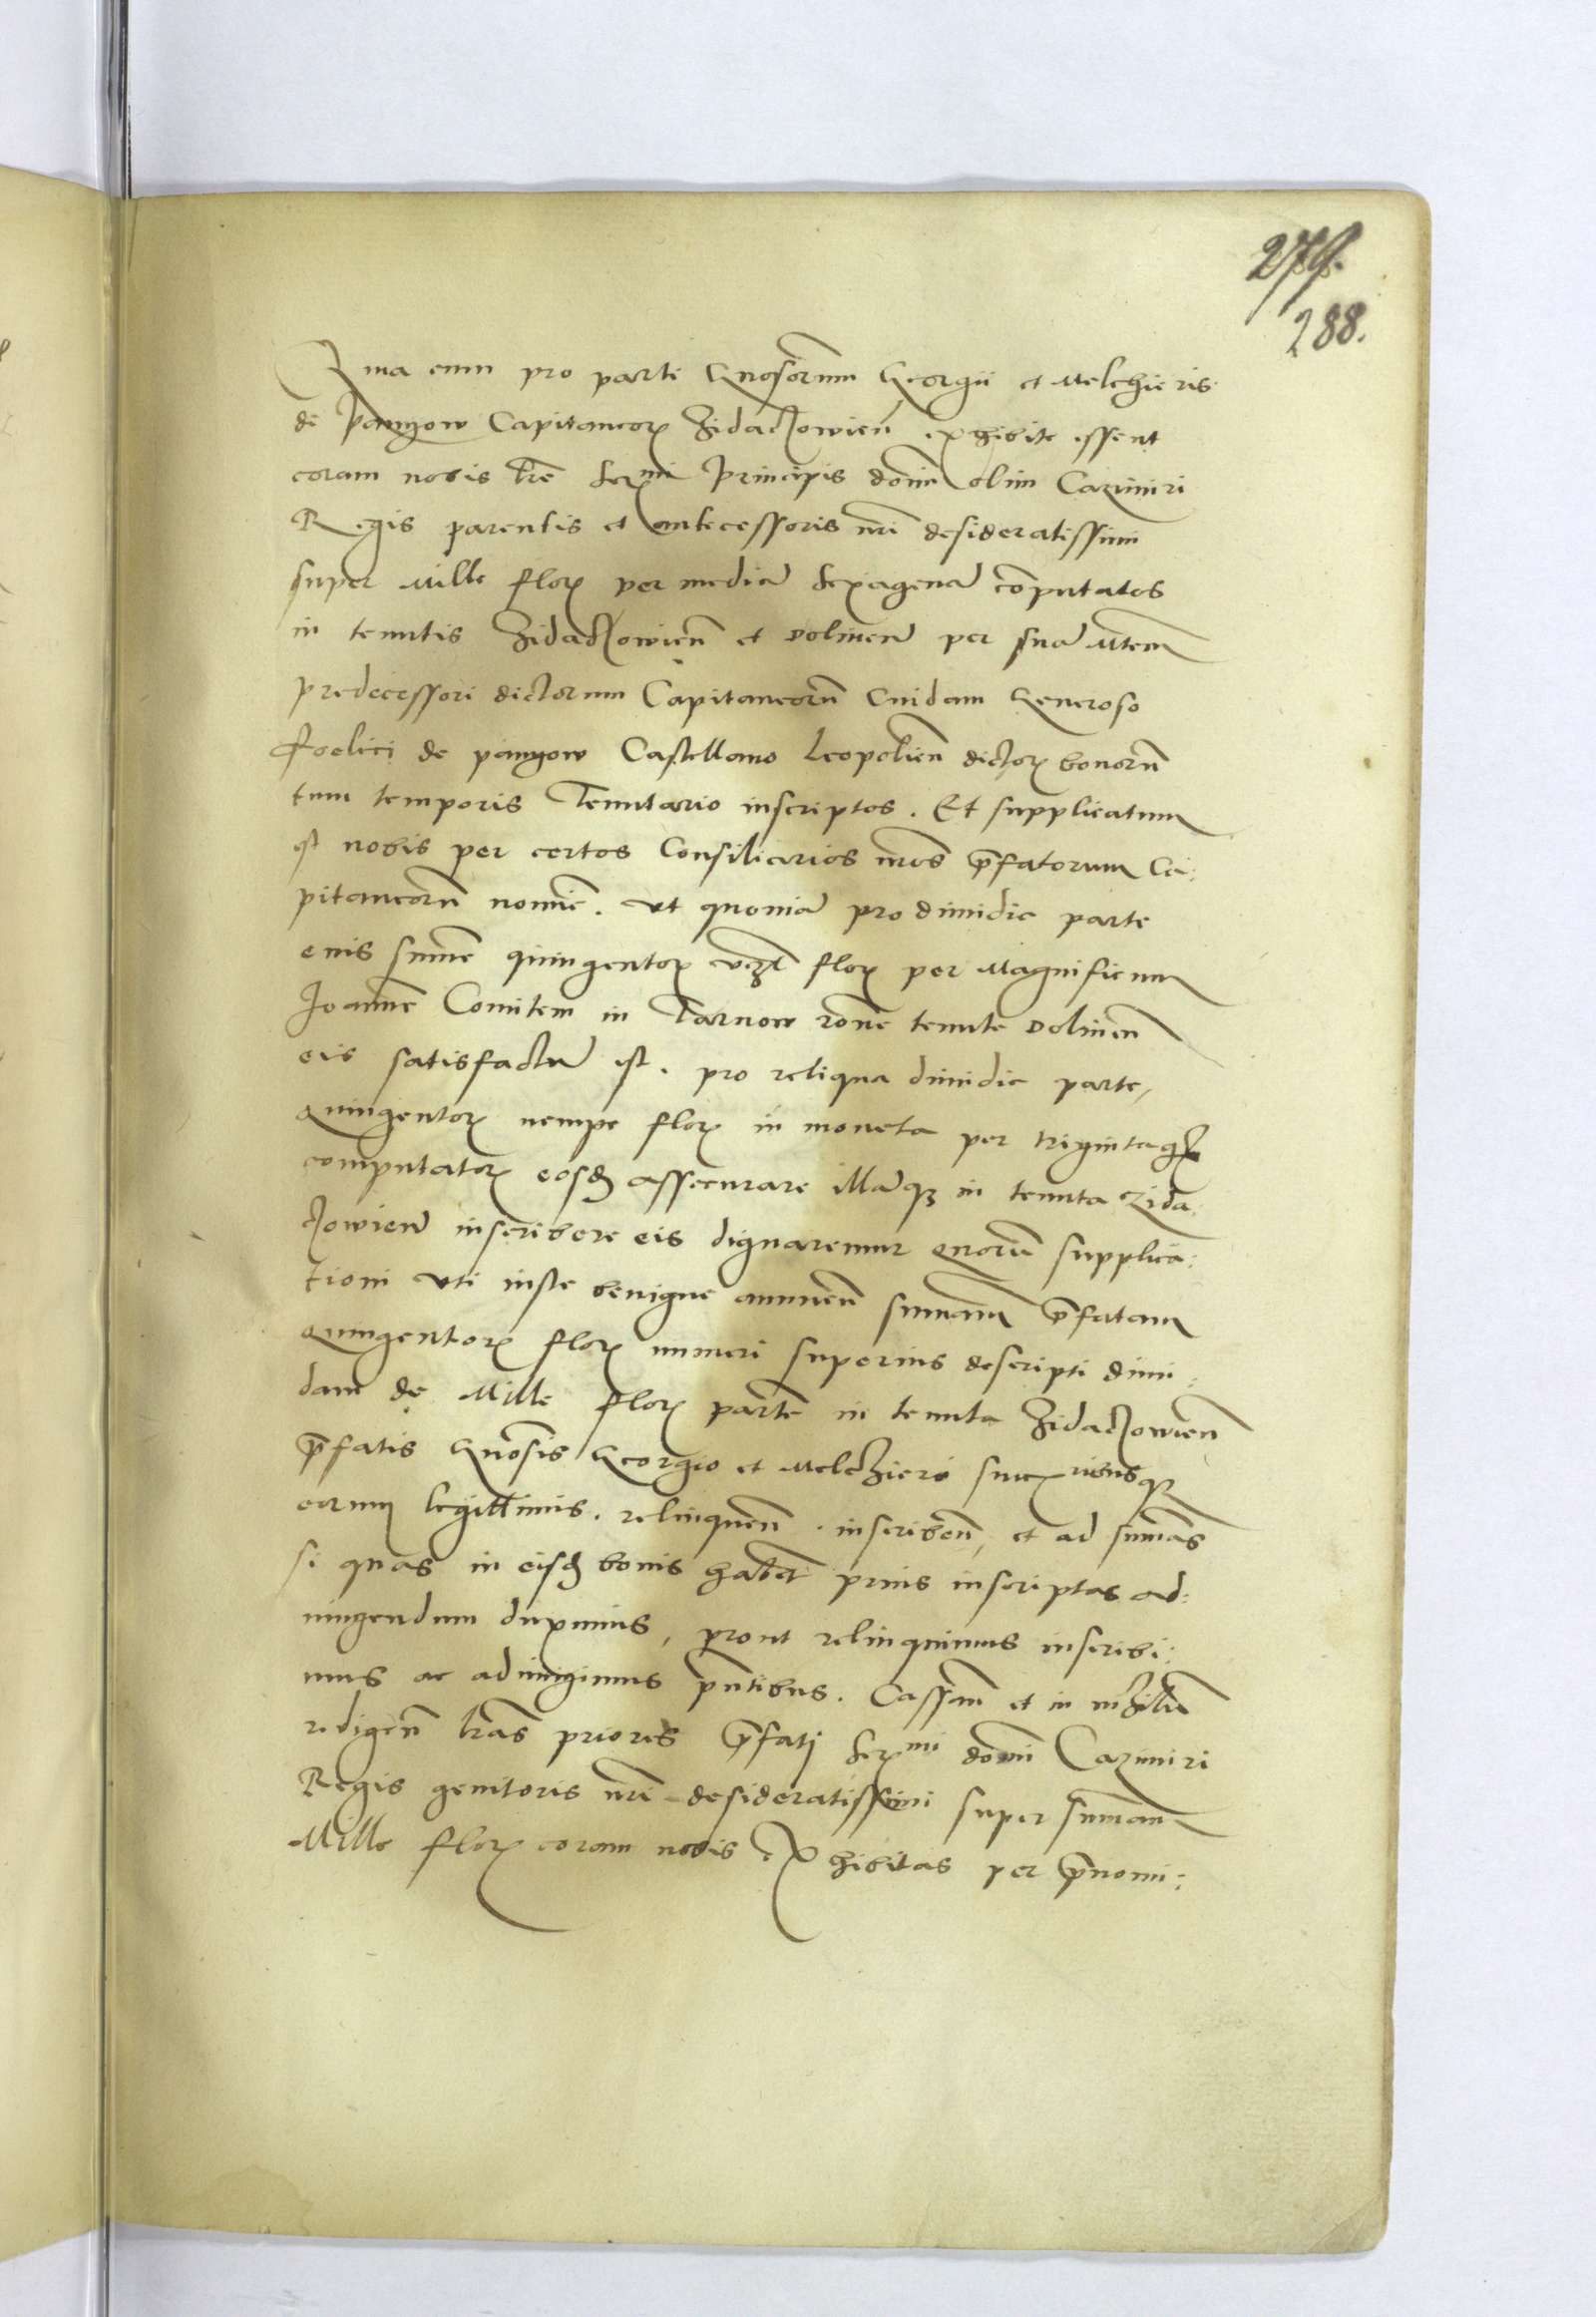 279.
288.
Quia cum pro parte Gnosorum Georgii et Melchioris
de Panyow Capitaneorum Zidaczowien exhibite essent
coram nobis lre Sermi Principis domini olim Cazimiri
Regis parentis et antecessoris nri desideratissimi
super Mille flor per media sexagena computatos
in tenutis Zidaczowien et Dolinen per sua Mtem
predecessori dictorum Capitaneorum cuidam Generoso
Foelici de panyow Castellano Leopolien dictor bonorum
tum temporis Tenutario inscriptos. Et supplicatum
est nobis per certos Consiliarios nros prefatorum Ca:
pitaneorum nomine. ut quonia pro dimidie parte
euis summe quingentor vezt flor per Magnificum
Joanne Comitem in Tarnow rone tenute Dolinen
eis satisfactu est. pro reliqua dimidie parte,
quingentor nempe flor in moneta per triginta gr
computator eosdem assecurare illaque in tenuta Zida:
czowien inscribere eis dignaremur quorum supplica:
tioni uti iuste benigne annuen summam prefatam
quingentor flor numeri superius descripti dimi:
dam de Mille flor parte in tenuta Zidaczowien
prefatis Gnosis Georgio et Melchiori successoribusque
eorum legittimis. relinquen. inscriben, et ad summas
si quas in eisdem bonis habet prius inscriptas ad:
iungendum duximus, prout relinquimus inscribi:
mus ac adiungimus pntibus. Cassan et in nihilum
redigen lras priores prefati Sermi domini Cazimiri
Regis genitoris nri desideratissimi super summam
Mille flor coram nobis exhibitas per prenomi: